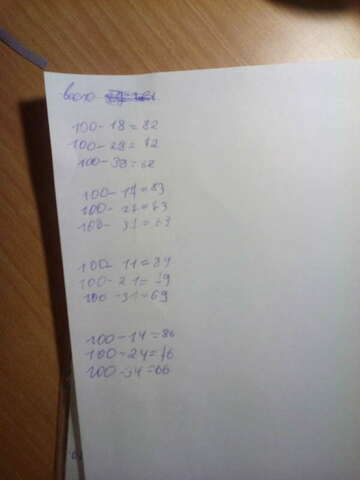 100-18=82
100-28=72
100-38=62
100-17=83
100-27=73
100-37=63
100-11=89
100-21=79
100-31=69
100-14=86
100-24=76
100-34=66